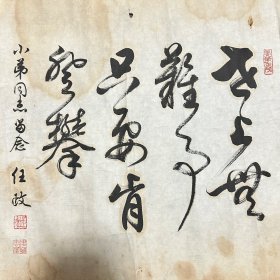 世上无
難事
只要肯
登攀
小弟同志留念 任政